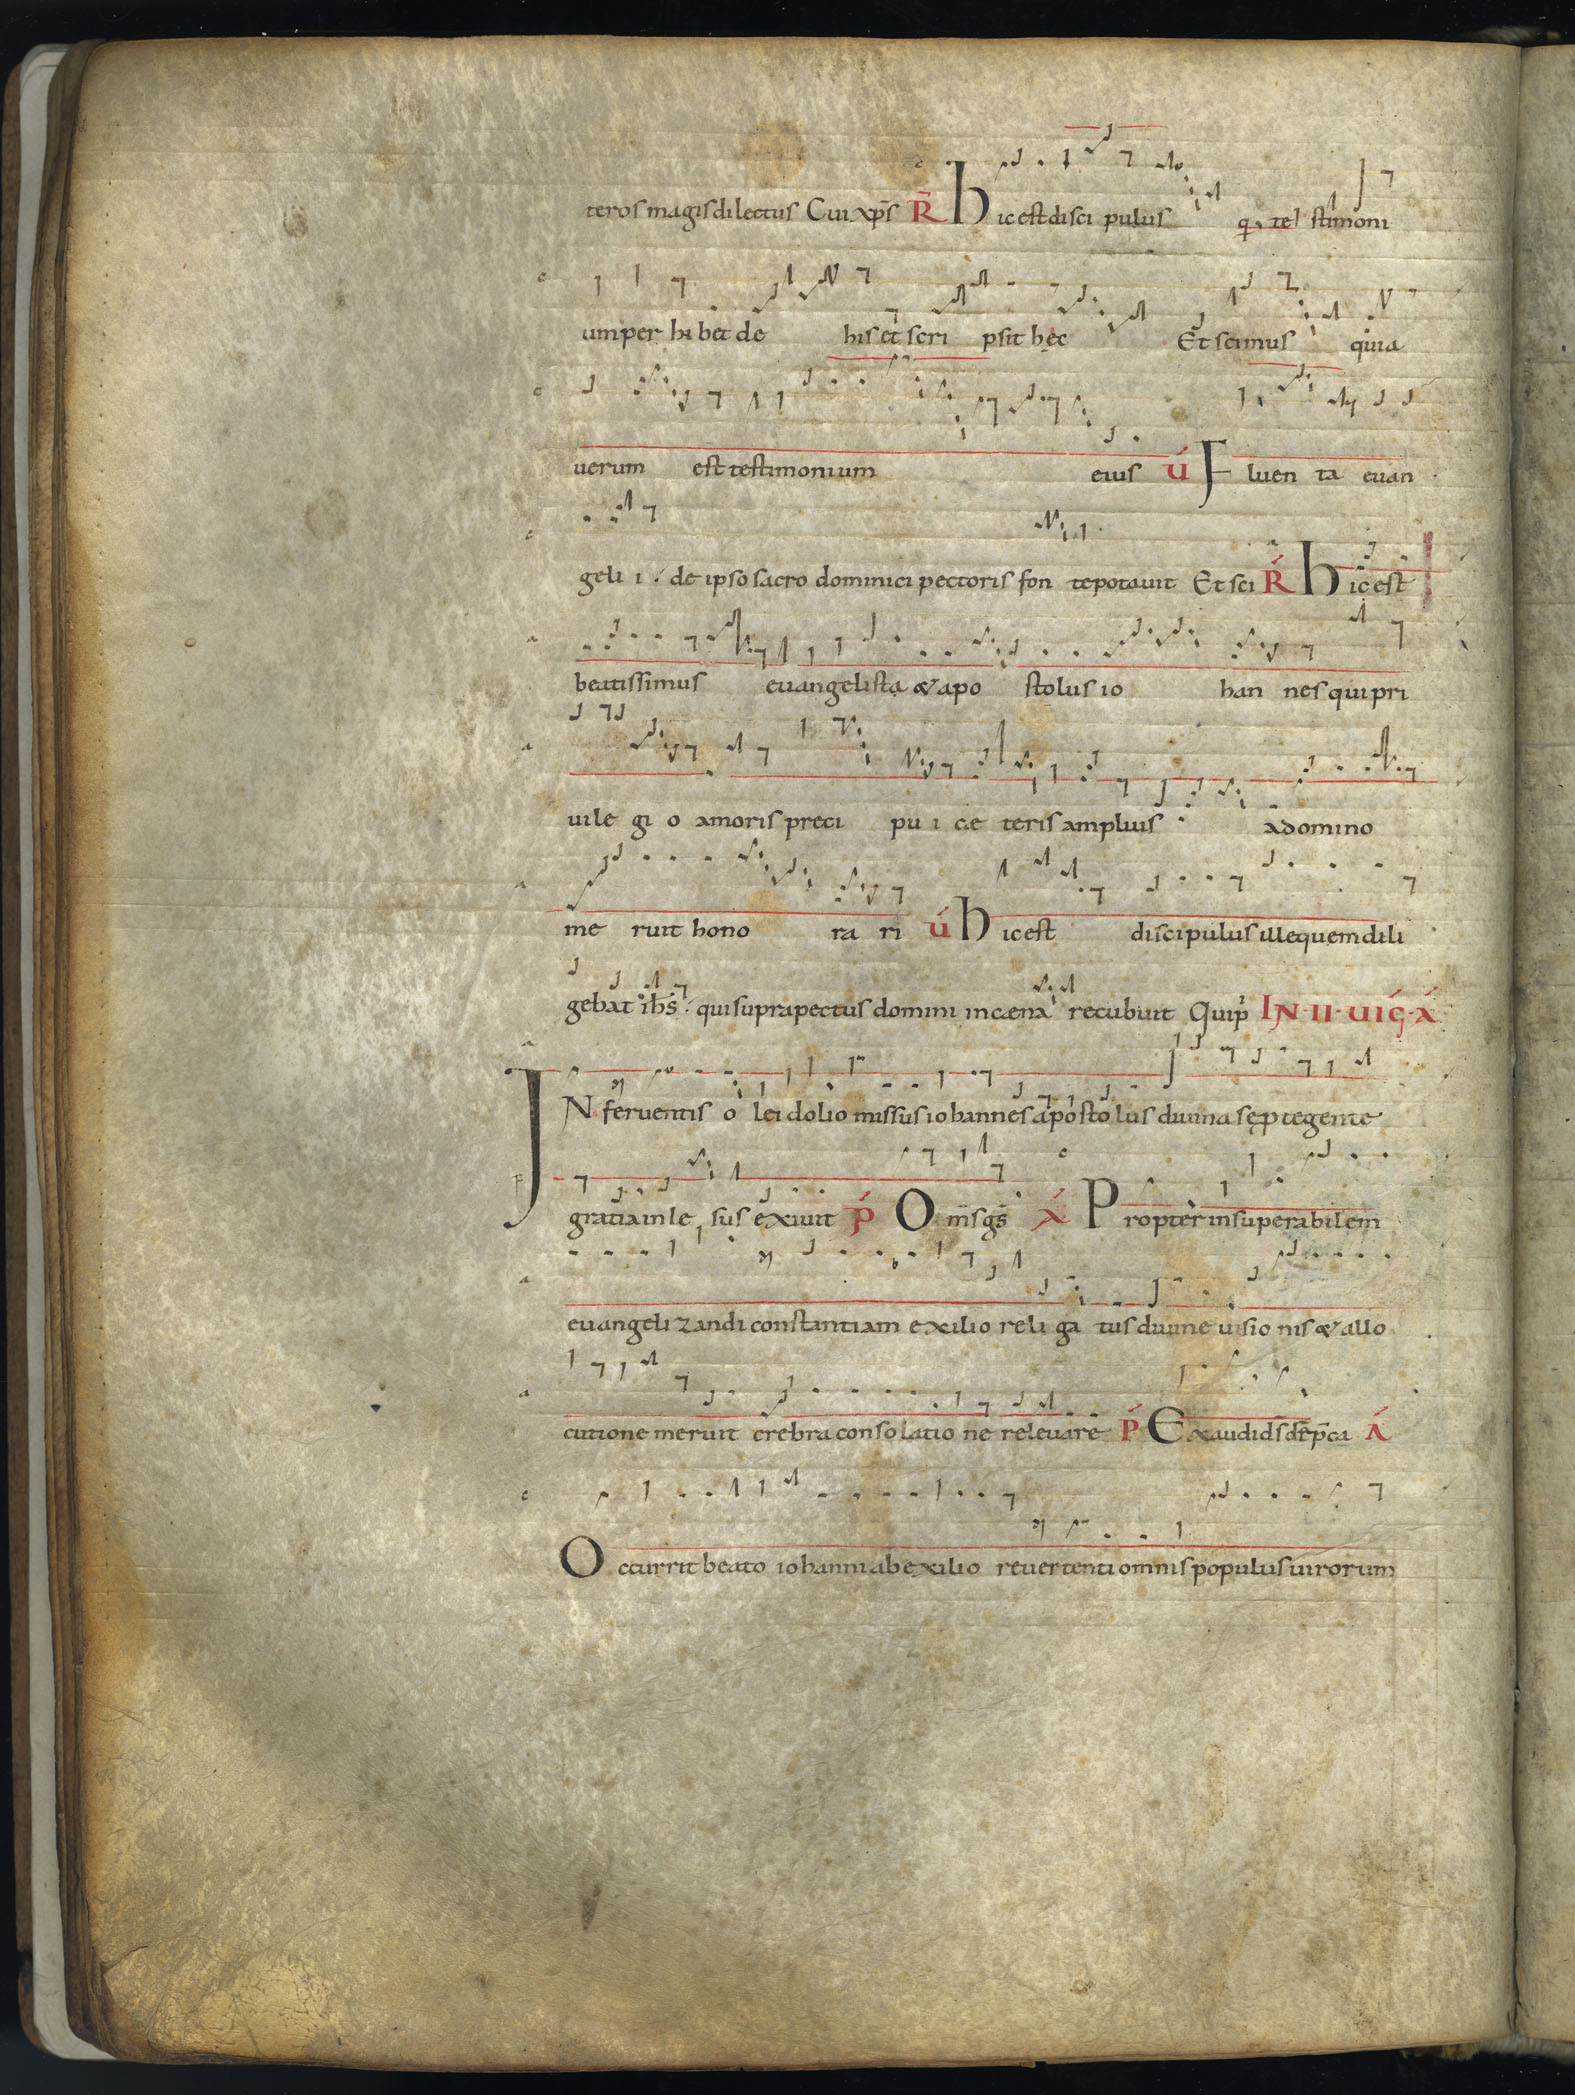 teros magis dilectus Cui xp̄s R̄ hic est disci pulus q̣ te stimoni
um per hi bet de his et scri psit hęc Et scimus quia
uerum est testimonium eius V́ Fluen ta euan
geli i: de ipso sacro dominici pectoris fon te potauit Et sci Ŕ hic est
beatissimus euangelista & apo stolus io han nes qui pri
uile gi o amoris preci pu i ce teris amplius a domino
me ruit hono ra ri V́ hic est discipulus ille quem dili
gebat ih̄s: qui supra pectus domini in cæna recubuit Qui p̓ IN·II·UIG̓·Á
IN feruentis o lei dolio missus iohannes aposto lus diuina se ꝓtegente
gratia inle sus exiuit Ṕ Om̄s gs̄ Á Propter insuperabilem
euangelizandi constantiam exilio reli ga tus diuine uisio nis & allo
cutione meruit crebra consolatio ne releuare Ṕ Exaudi ds̄ dep̄ca Á
Occurrit beato iohanni ab exilio reuertenti omnis populus uirorum